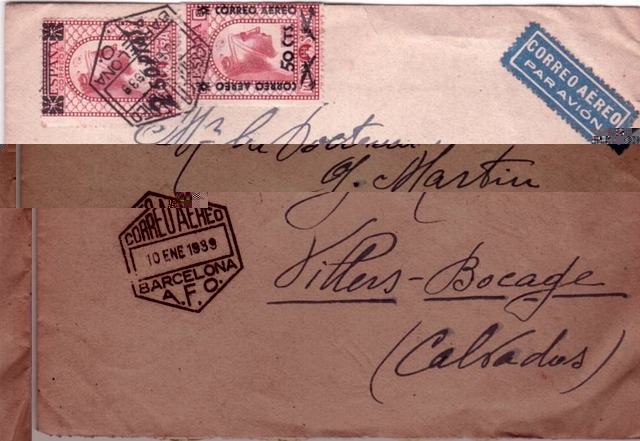 ESPAÑA
CORREO AÉREO
50 CTS.
CORREO AÉREO
CORREO AÉREO
PAR AVION
Mr le Docteur
G. Martin
CORREO AEREO
10 ENE 1939
BARCELONA
A.F.O.
Villers-Bocage
(Calvados)